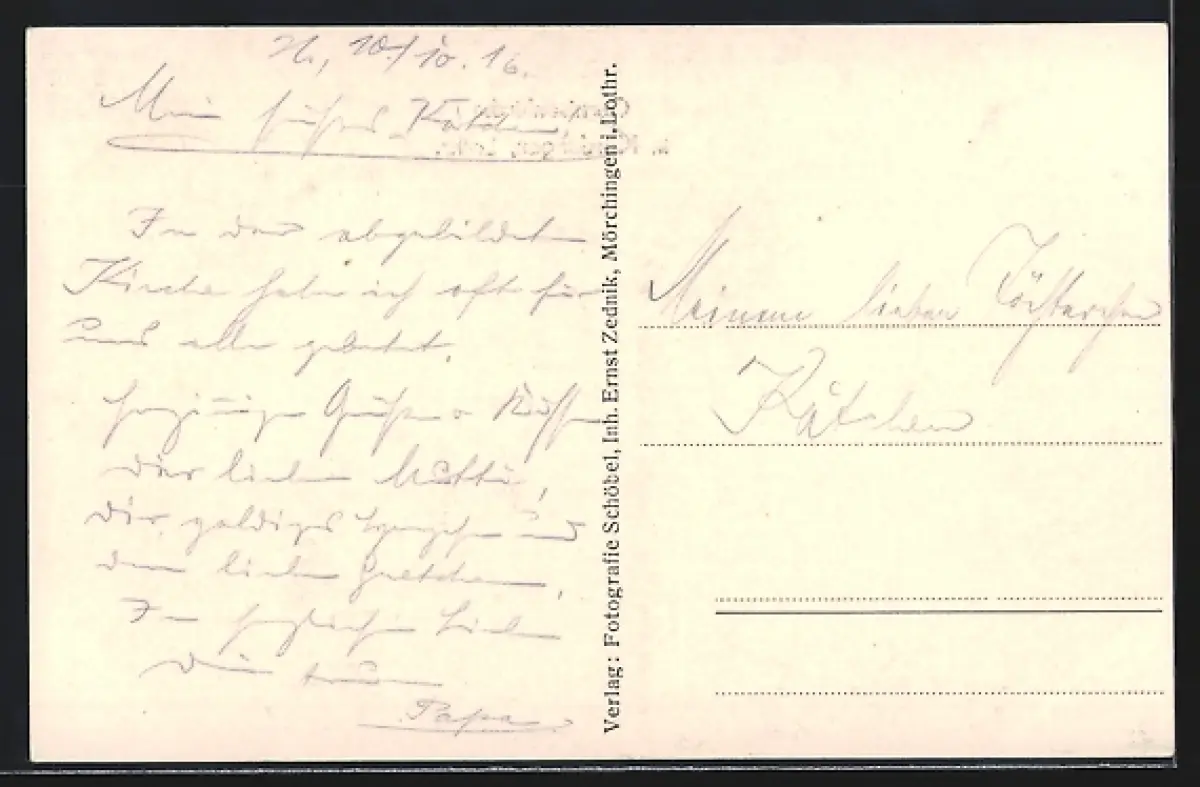 10/10. 16.
Mein süßes Kätchen!
In der abgebildeten
Kirche habe ich oft für
uns alle gebetet.
Grüße u Küsse
der lieben Mutti,
Dir, goldiges und
dem lieben Gretchen,
In herzlicher Liebe
Dein treuer
Papa
Verlag: Fotografie Schöbel, Inh. Ernst Zednik, Mörchingen i. Lothr.
Meinem lieben Töchterchen
Kätchen